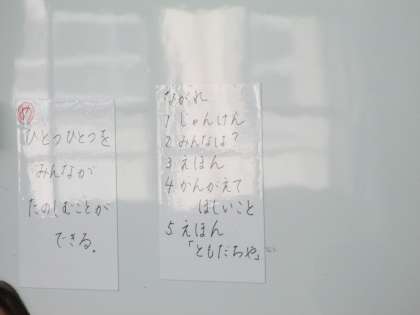 め
ひとつひとつを
みんなが
たのしむことが
できる。
ながれ
1 じゃんけん
2 みんなは?
3 えほん
4 かんがえて
ほしいこと
5 えほん
「ともだちや」